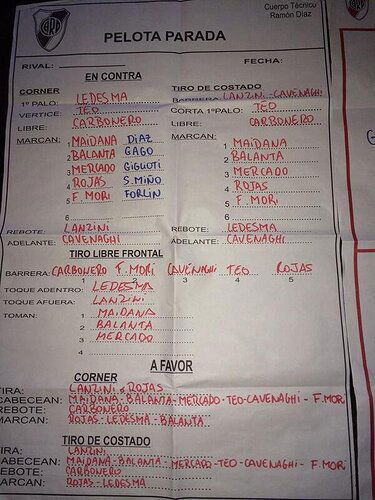 CARP
Cuerpo Técnico
Ramón Díaz
PELOTA PARADA
RIVAL:
FECHA:
EN CONTRA
CORNER
1º PALO: LEDESMA
VERTICE: TEO
LIBRE: CARBONERO
MARCAN:
1 MAIDANA DIAZ
2 BALANTA GAGO
3 MERCADO GIGLIOTI
4 ROJAS S.MIÑO
5 F. MORI FORLIN
6
REBOTE: LANZINI
ADELANTE: CAVENAGHI
TIRO DE COSTADO
BARRERA: LANZINI - CAVENAGHI
CORTA 1ºPALO: TEO
LIBRE: CARBONERO
MARCAN:
1 MAIDANA
2 BALANTA
3 MERCADO
4 ROJAS
5 F. MORI
6
REBOTE: LEDESMA
ADELANTE: CAVENAGHI
TIRO LIBRE FRONTAL
BARRERA: CARBONERO F. MORI CAVENAGHI TEO ROJAS
3 4 5
TOQUE ADENTRO: LEDESMA
TOQUE AFUERA: LANZINI
TOMAN: 1 MAIDANA
2 BALANTA
3 MERCADO
4
A FAVOR
CORNER
TIRA: LANZINI o ROJAS
CABECEAN: MAIDANA-BALANTA-MERCADO-TEO-CAVENAGHI - F. MORI
REBOTE: CARBONERO
MARCAN: ROJAS-LEDESMA-BALANTA
TIRO DE COSTADO
IRA: LANZINI
ABECEAN: MAIDANA-BALANTA-MERCADO-TEO-CAVENAGHI - F. MORI
EBOTE: CARBONERO
ARCAN: ROJAS-LEDESMA